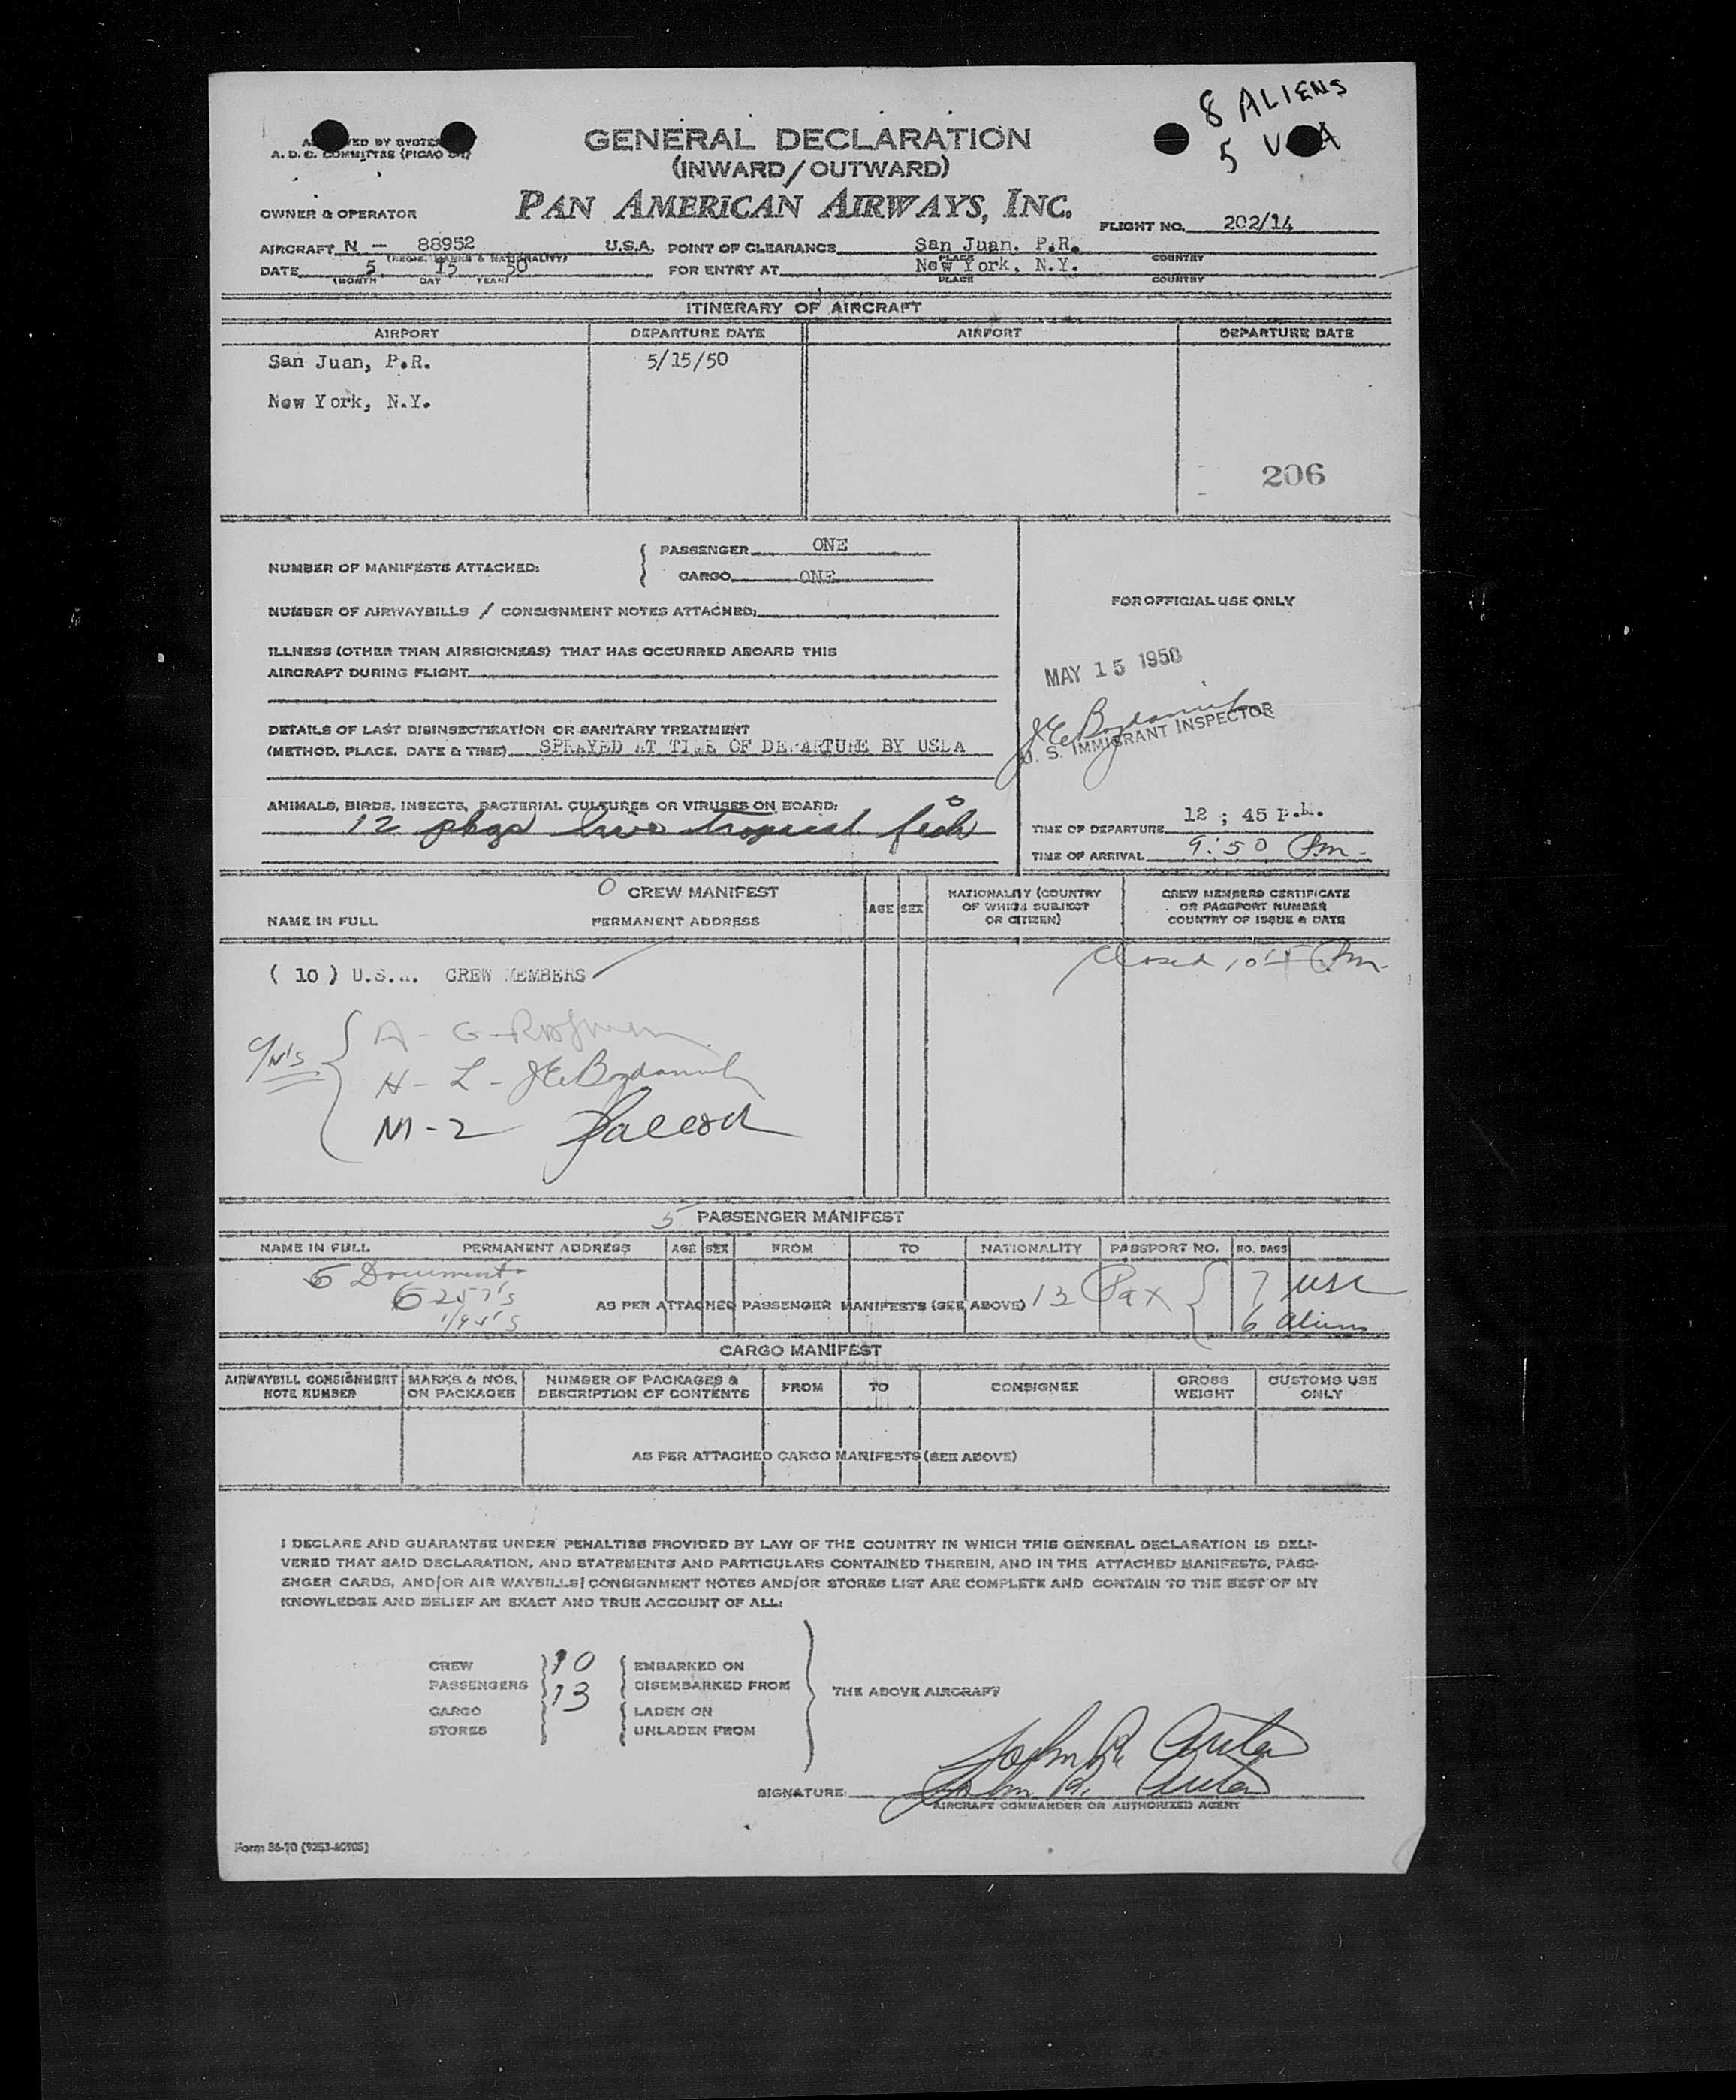 8 ALIENS
5 U A
VED BY SYSTE
A. D. C. COMMITTEE (PICAO
GENERAL DECLARATION
(INWARD/OUTWARD)
OWNER & OPERATOR
PAN AMERICAN AIRWAYS, INC.
FLIGHT NO. 202/14
AIRCRAFT N - 88952 U.S.A. POINT OF CLEARANCE San Juan. P.R.
(REGIS. MARKS & NATIONALITY) PLACE COUNTRY
DATE 5 15 50 FOR ENTRY AT New York, N.Y.
(MONTH DAY YEAR) PLACE COUNTRY
ITINERARY OF AIRCRAFT
AIRPORT DEPARTURE DATE AIRPORT DEPARTURE DATE
San Juan, P.R. 5/15/50
New York, N.Y.
206
NUMBER OF MANIFESTS ATTACHED: PASSENGER ONE
CARGO ONE
NUMBER OF AIRWAYBILLS / CONSIGNMENT NOTES ATTACHED:
FOR OFFICIAL USE ONLY
ILLNESS (OTHER THAN AIRSICKNESS) THAT HAS OCCURRED ABOARD THIS
AIRCRAFT DURING FLIGHT
MAY 15 1950
J E Bogdanich
U. S. IMMIGRANT INSPECTOR
DETAILS OF LAST DISINSECTIZATION OR SANITARY TREATMENT
(METHOD, PLACE, DATE & TIME) SPRAYED AT TIME OF DEPARTURE BY USLA
ANIMALS, BIRDS, INSECTS, BACTERIAL CULTURES OR VIRUSES ON BOARD:
12 pkgs live tropical fish
TIME OF DEPARTURE 12 ; 45 P.M.
TIME OF ARRIVAL 9:50 Pm.
0 CREW MANIFEST
NAME IN FULL PERMANENT ADDRESS
AGE SEX
NATIONALITY (COUNTRY
OF WHICH SUBJECT
OR CITIZEN)
CREW MEMBERS CERTIFICATE
OR PASSPORT NUMBER
COUNTRY OF ISSUE & DATE
Closed 10 Pm.
( 10 ) U.S.A. CREW MEMBERS
A - G -
H - L - J E Bogdanich
M - 2
5 PASSENGER MANIFEST
NAME IN FULL PERMANENT ADDRESS AGE SEX FROM TO NATIONALITY PASSPORT NO. NO. BAGS
6 Documents
6 257's
AS PER ATTACHED PASSENGER MANIFESTS (SEE ABOVE) 13 Pax 7 USC
6 aliens
CARGO MANIFEST
AIRWAYBILL CONSIGNMENT
NOTE NUMBER
MARKS & NOS.
ON PACKAGES
NUMBER OF PACKAGES &
DESCRIPTION OF CONTENTS
FROM
TO
CONSIGNEE
GROSS
WEIGHT
CUSTOMS USE
ONLY
AS PER ATTACHED CARGO MANIFESTS (SEE ABOVE)
I DECLARE AND GUARANTEE UNDER PENALTIES PROVIDED BY LAW OF THE COUNTRY IN WHICH THIS GENERAL DECLARATION IS DELI-
VERED THAT SAID DECLARATION, AND STATEMENTS AND PARTICULARS CONTAINED THEREIN, AND IN THE ATTACHED MANIFESTS, PASS-
ENGER CARDS, AND/OR AIR WAYBILLS/CONSIGNMENT NOTES AND/OR STORES LIST ARE COMPLETE AND CONTAIN TO THE BEST OF MY
KNOWLEDGE AND BELIEF AN EXACT AND TRUE ACCOUNT OF ALL:
CREW 10 EMBARKED ON
PASSENGERS 13 DISEMBARKED FROM
THE ABOVE AIRCRAFT
CARGO LADEN ON
STORES UNLADEN FROM
John R.
SIGNATURE: John R.
AIRCRAFT COMMANDER OR AUTHORIZED AGENT
Form 36-70